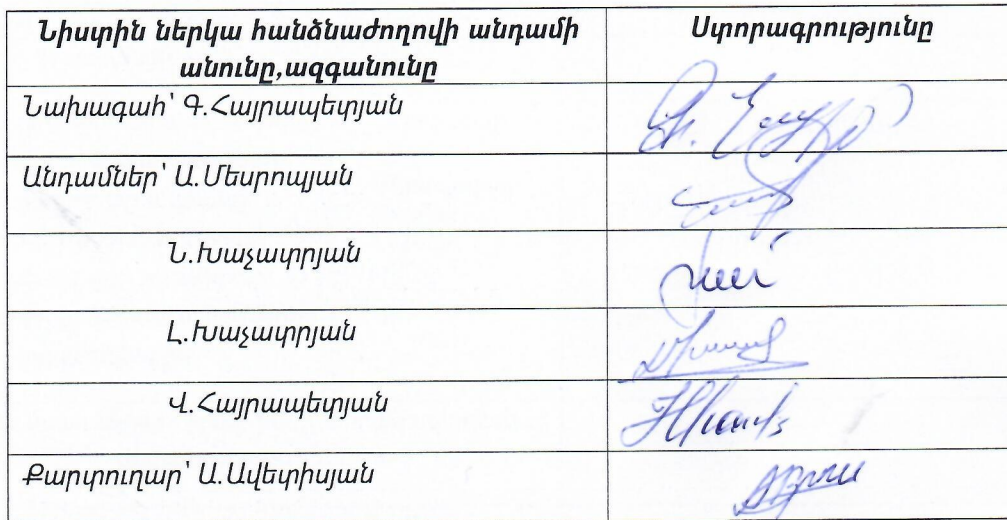 Նիստին ներկա հանձնաժողովի անդամի
անունը,ազգանունը
Ստորագրությունը
Նախագահ՝ Գ.Հայրապետյան
Անդամներ՝ Ա.Մեսրոպյան
Ն.Խաչատրյան
Լ.Խաչատրյան
Վ.Հայրապետրյան
Քարտուղար՝ Ա.Ավետիսյան